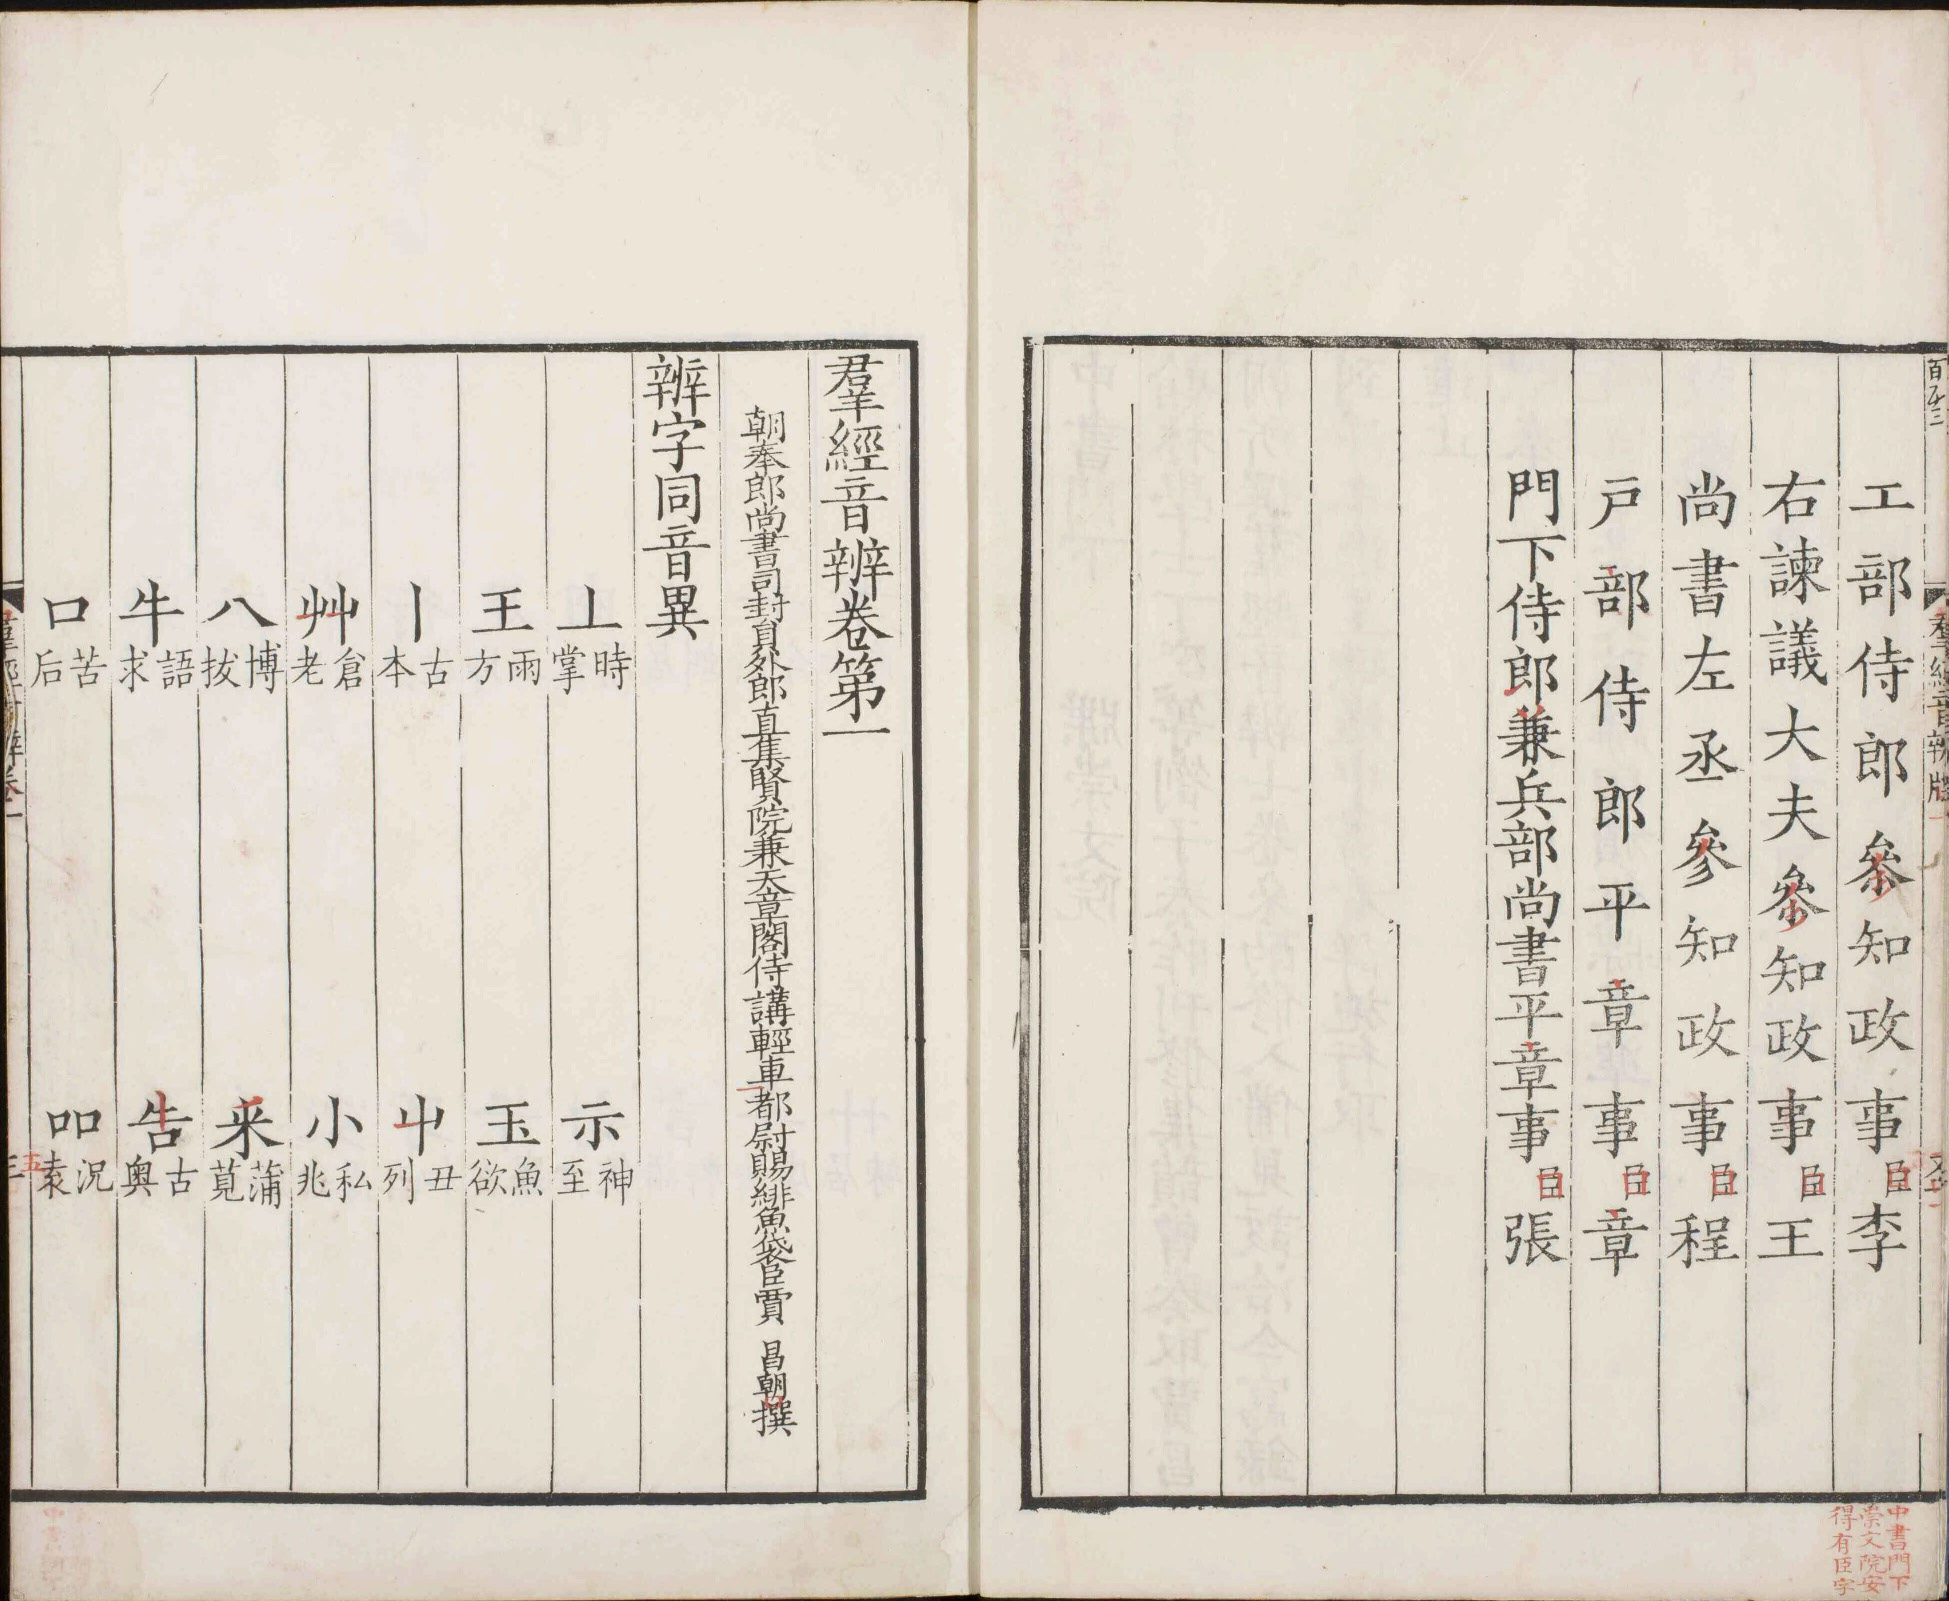 工部侍郎參知政事臣李
右諫議大夫參知政事臣王
尚書左丞參知政事臣程
戶部侍郎平章事臣章
門下侍郎兼兵部尚書平章事臣張
中書門下
崇文院安
得有臣字
羣經音辨卷第一
朝奉郎尚書司封員外郎直集賢院兼天章閣侍講輕車都尉賜緋魚袋臣賈昌朝撰
辨字同音異
丄時掌 示神至
王雨方 玉魚欲
丨古本 屮丑列
艸倉老 小私兆
八博拔 釆蒲莧
牛語求 告古奧
口苦后 吅況袁
羣經音辨卷一